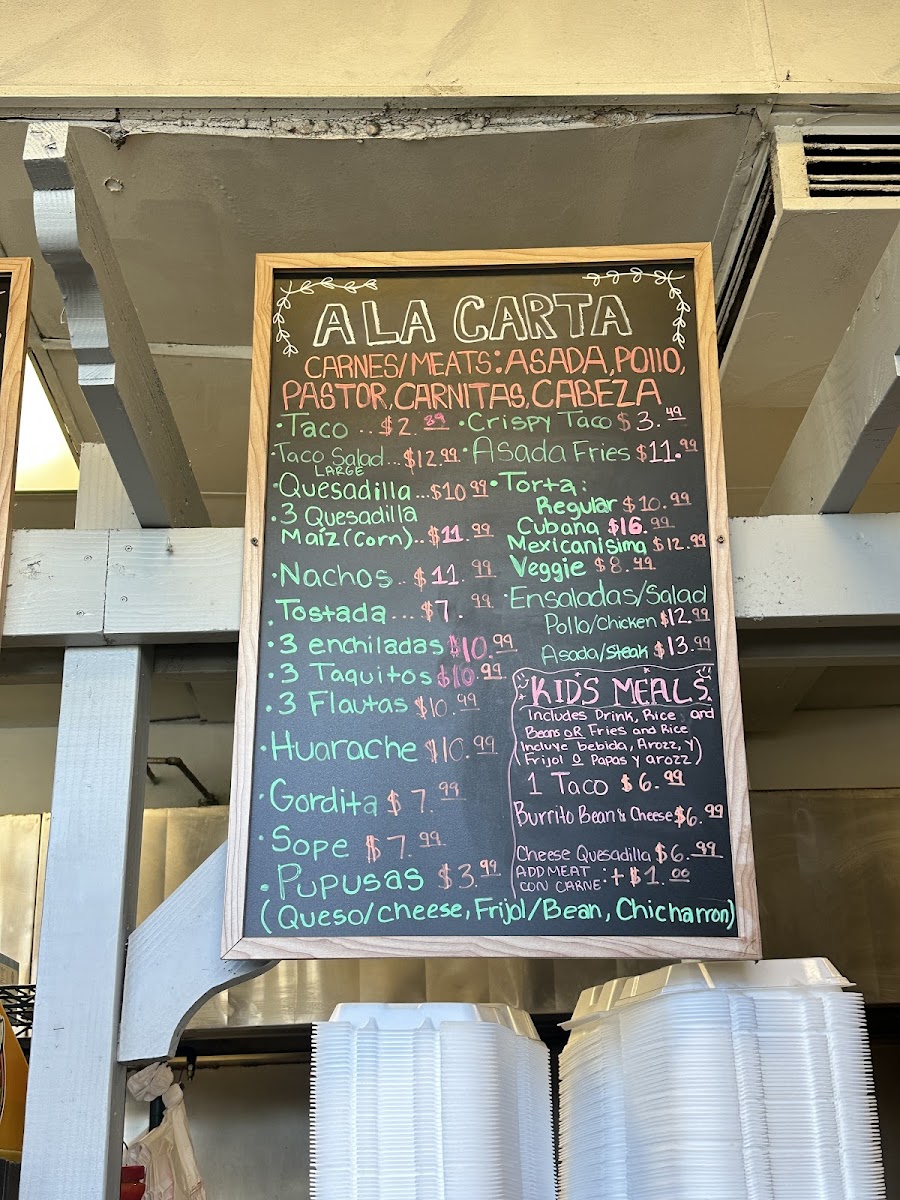 A LA CARTA
CARNES/MEATS: ASADA, POllO,
PASTOR, CARNITAS, CABEZA
·Taco .. $2.89
·Taco Salad... $12.99
LARGE
·Quesadilla... $10.99
·3 Quesadilla
Maíz (Corn).. $11.99
·Nachos.. $11.99
·Tostada.... $7.99
·3 enchiladas $10.99
·3 Taquitos $10.99
·3 Flautas $10.99
·Huarache $10.99
·Gordita $7.99
·Sope $7.99
·Pupusas $3.99
(Queso/cheese, Frijol/Bean, Chicharron)
·Crispy Taco $3.49
·Asada Fries $11.99
·Torta:
Regular $10.99
Cubana $16.99
Mexicanisima $12.99
Veggie $8.49
·Ensaladas/Salad
Pollo/Chicken $12.99
Asada/Steak $13.99
KIDS MEALS
Includes Drink, Rice and
Beans OR Fries and Rice
(Incluye bebida, Arozz, y
Frijol O Papas y arozz)
1 Taco $6.99
Burrito Bean & Cheese $6.99
Cheese Quesadilla $6.99
ADD MEAT
CON CARNE: + $1.00